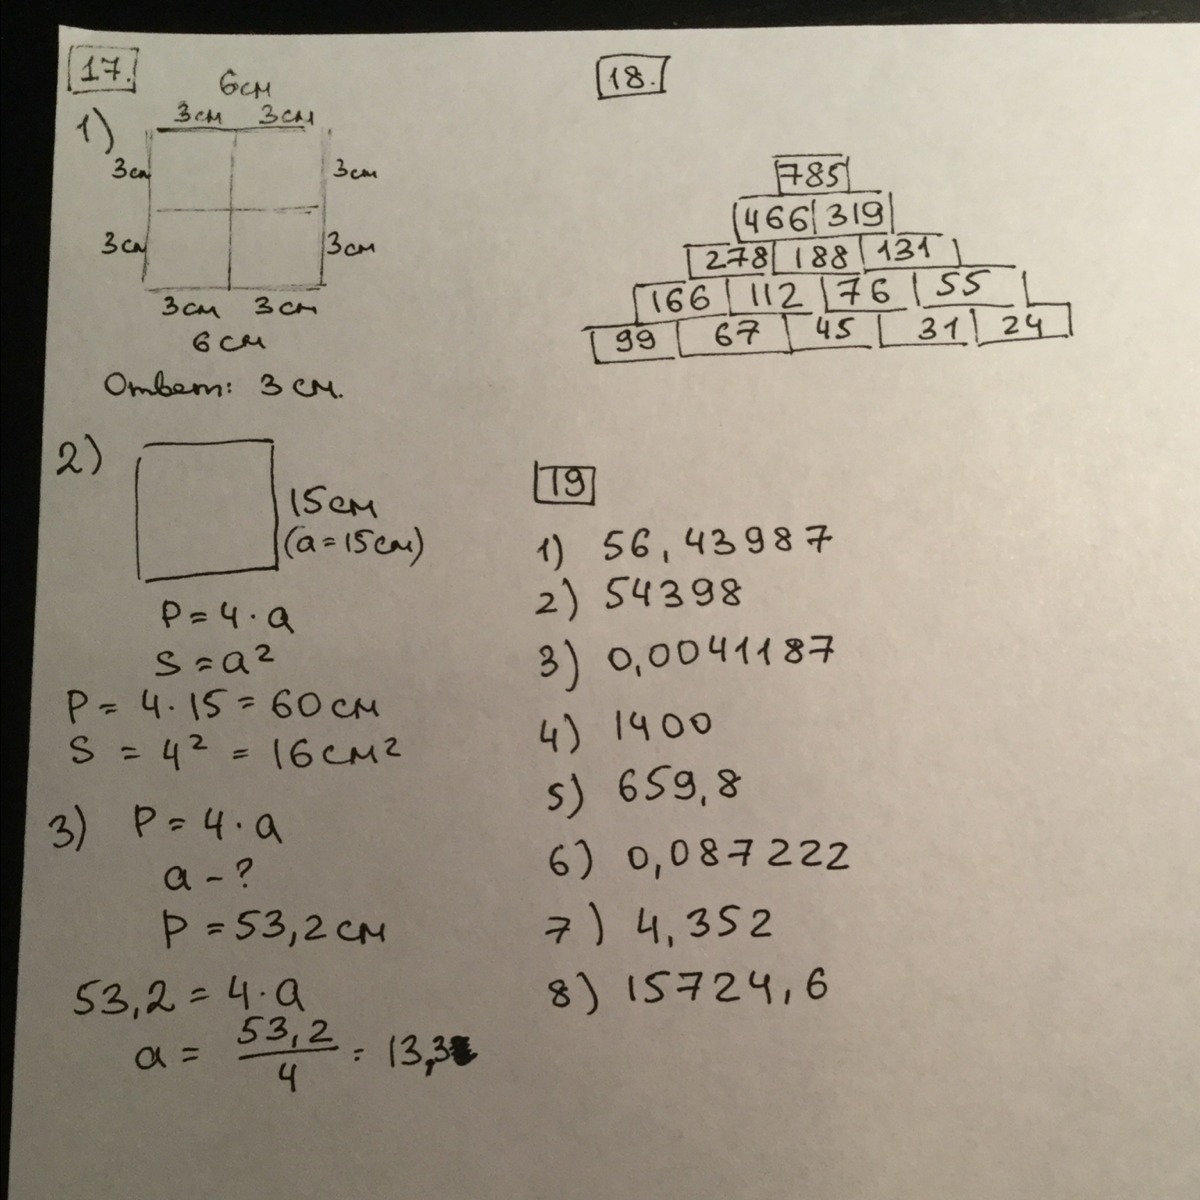 17.
6см
1)
3см 3см
3см 3см
3см 3см
3см 3см
6см
Ответ: 3 см.
2)
15см
(a=15см)
P = 4 · a
S = a²
P = 4 · 15 = 60 см
S = 4² = 16 см²
3) P = 4 · a
a - ?
P = 53,2 см
53,2 = 4 · a
a = 53,2/4 = 13,3
18.
785
466 319
278 188 131
166 112 76 55
99 67 45 31 24
19
1) 56,43987
2) 54398
3) 0,0041187
4) 1400
5) 659,8
6) 0,087222
7) 4,352
8) 15724,6